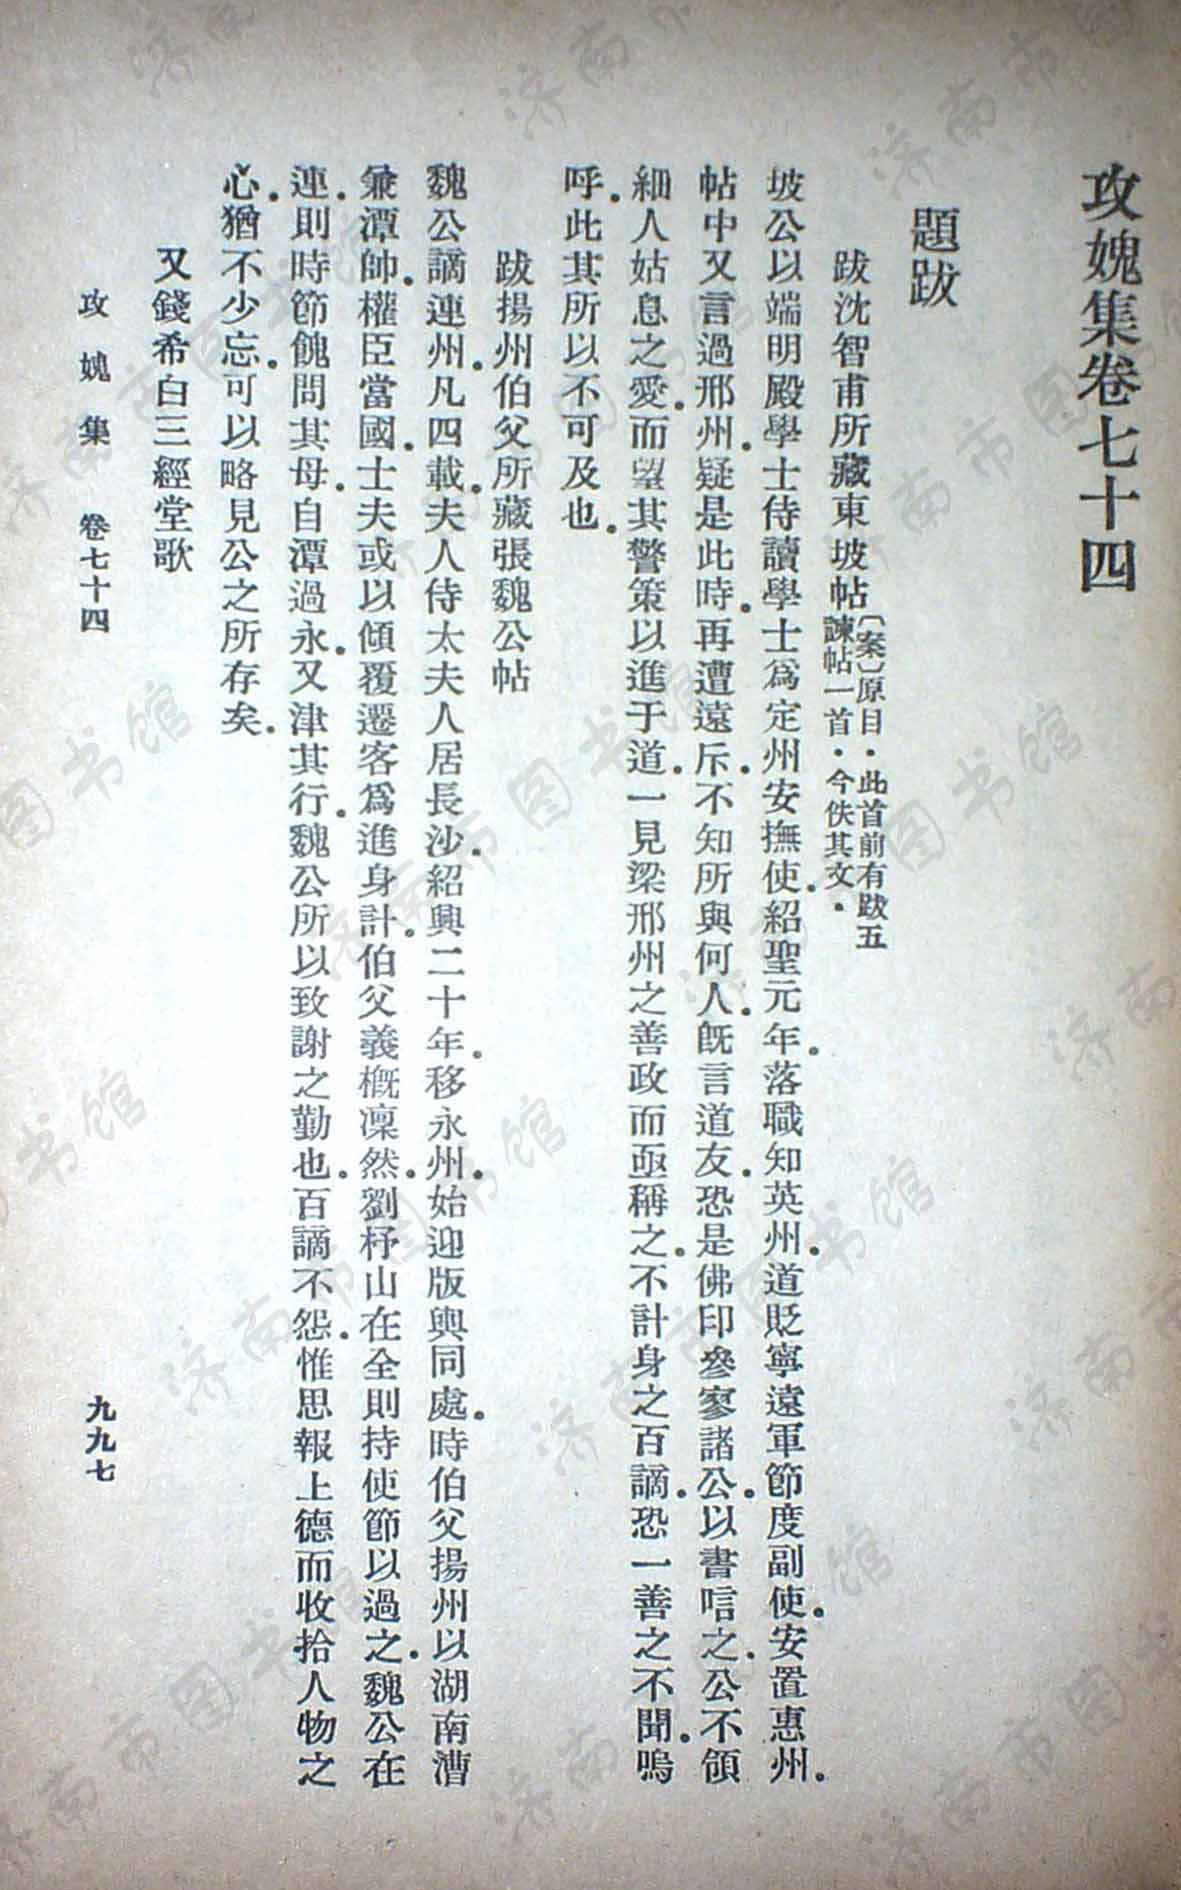 攻媿集卷七十四
題跋
跋沈智甫所藏東坡帖〔案〕原目・此首前有跋五
諫帖一首・今佚其文・
坡公以端明殿學士侍讀學士爲定州安撫使。紹聖元年。落職知英州。道貶寧遠軍節度副使。安置惠州。
帖中又言過邢州。疑是此時。再遭遠斥。不知所與何人。旣言道友。恐是佛印參寥諸公。以書唁之。公不領
細人姑息之愛。而望其警策以進于道。一見梁邢州之善政而亟稱之。不計身之百謫。恐一善之不聞。嗚
呼。此其所以不可及也。
跋揚州伯父所藏張魏公帖
魏公謫連州。凡四載。夫人侍太夫人居長沙。紹興二十年。移永州。始迎版輿同處。時伯父揚州以湖南漕
兼潭帥。權臣當國。士夫或以傾覆遷客爲進身計。伯父義槪凜然。劉杼山在全則持使節以過之。魏公在
連。則時節餽問其母。自潭過永。又津其行。魏公所以致謝之勤也。百謫不怨。惟思報上德而收拾人物之
心。猶不少忘。可以略見公之所存矣。
又錢希白三經堂歌
攻媿集 卷七十四
九九七
济南市图书馆